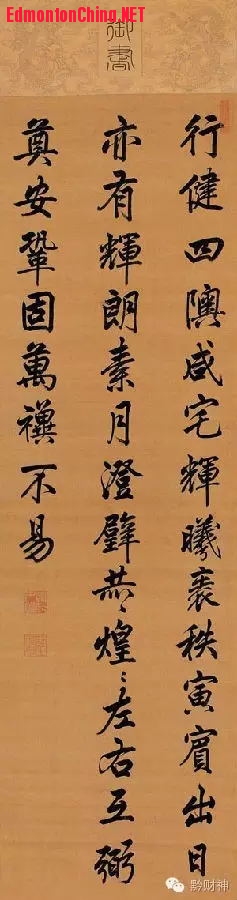 EdmontonChing.NET
御書
行健四隩咸宅輝曦秩寅賓出日
亦有輝朗素月澄璧赫〻煌〻左右互弼
奠安鞏固萬禩不易
黔财神